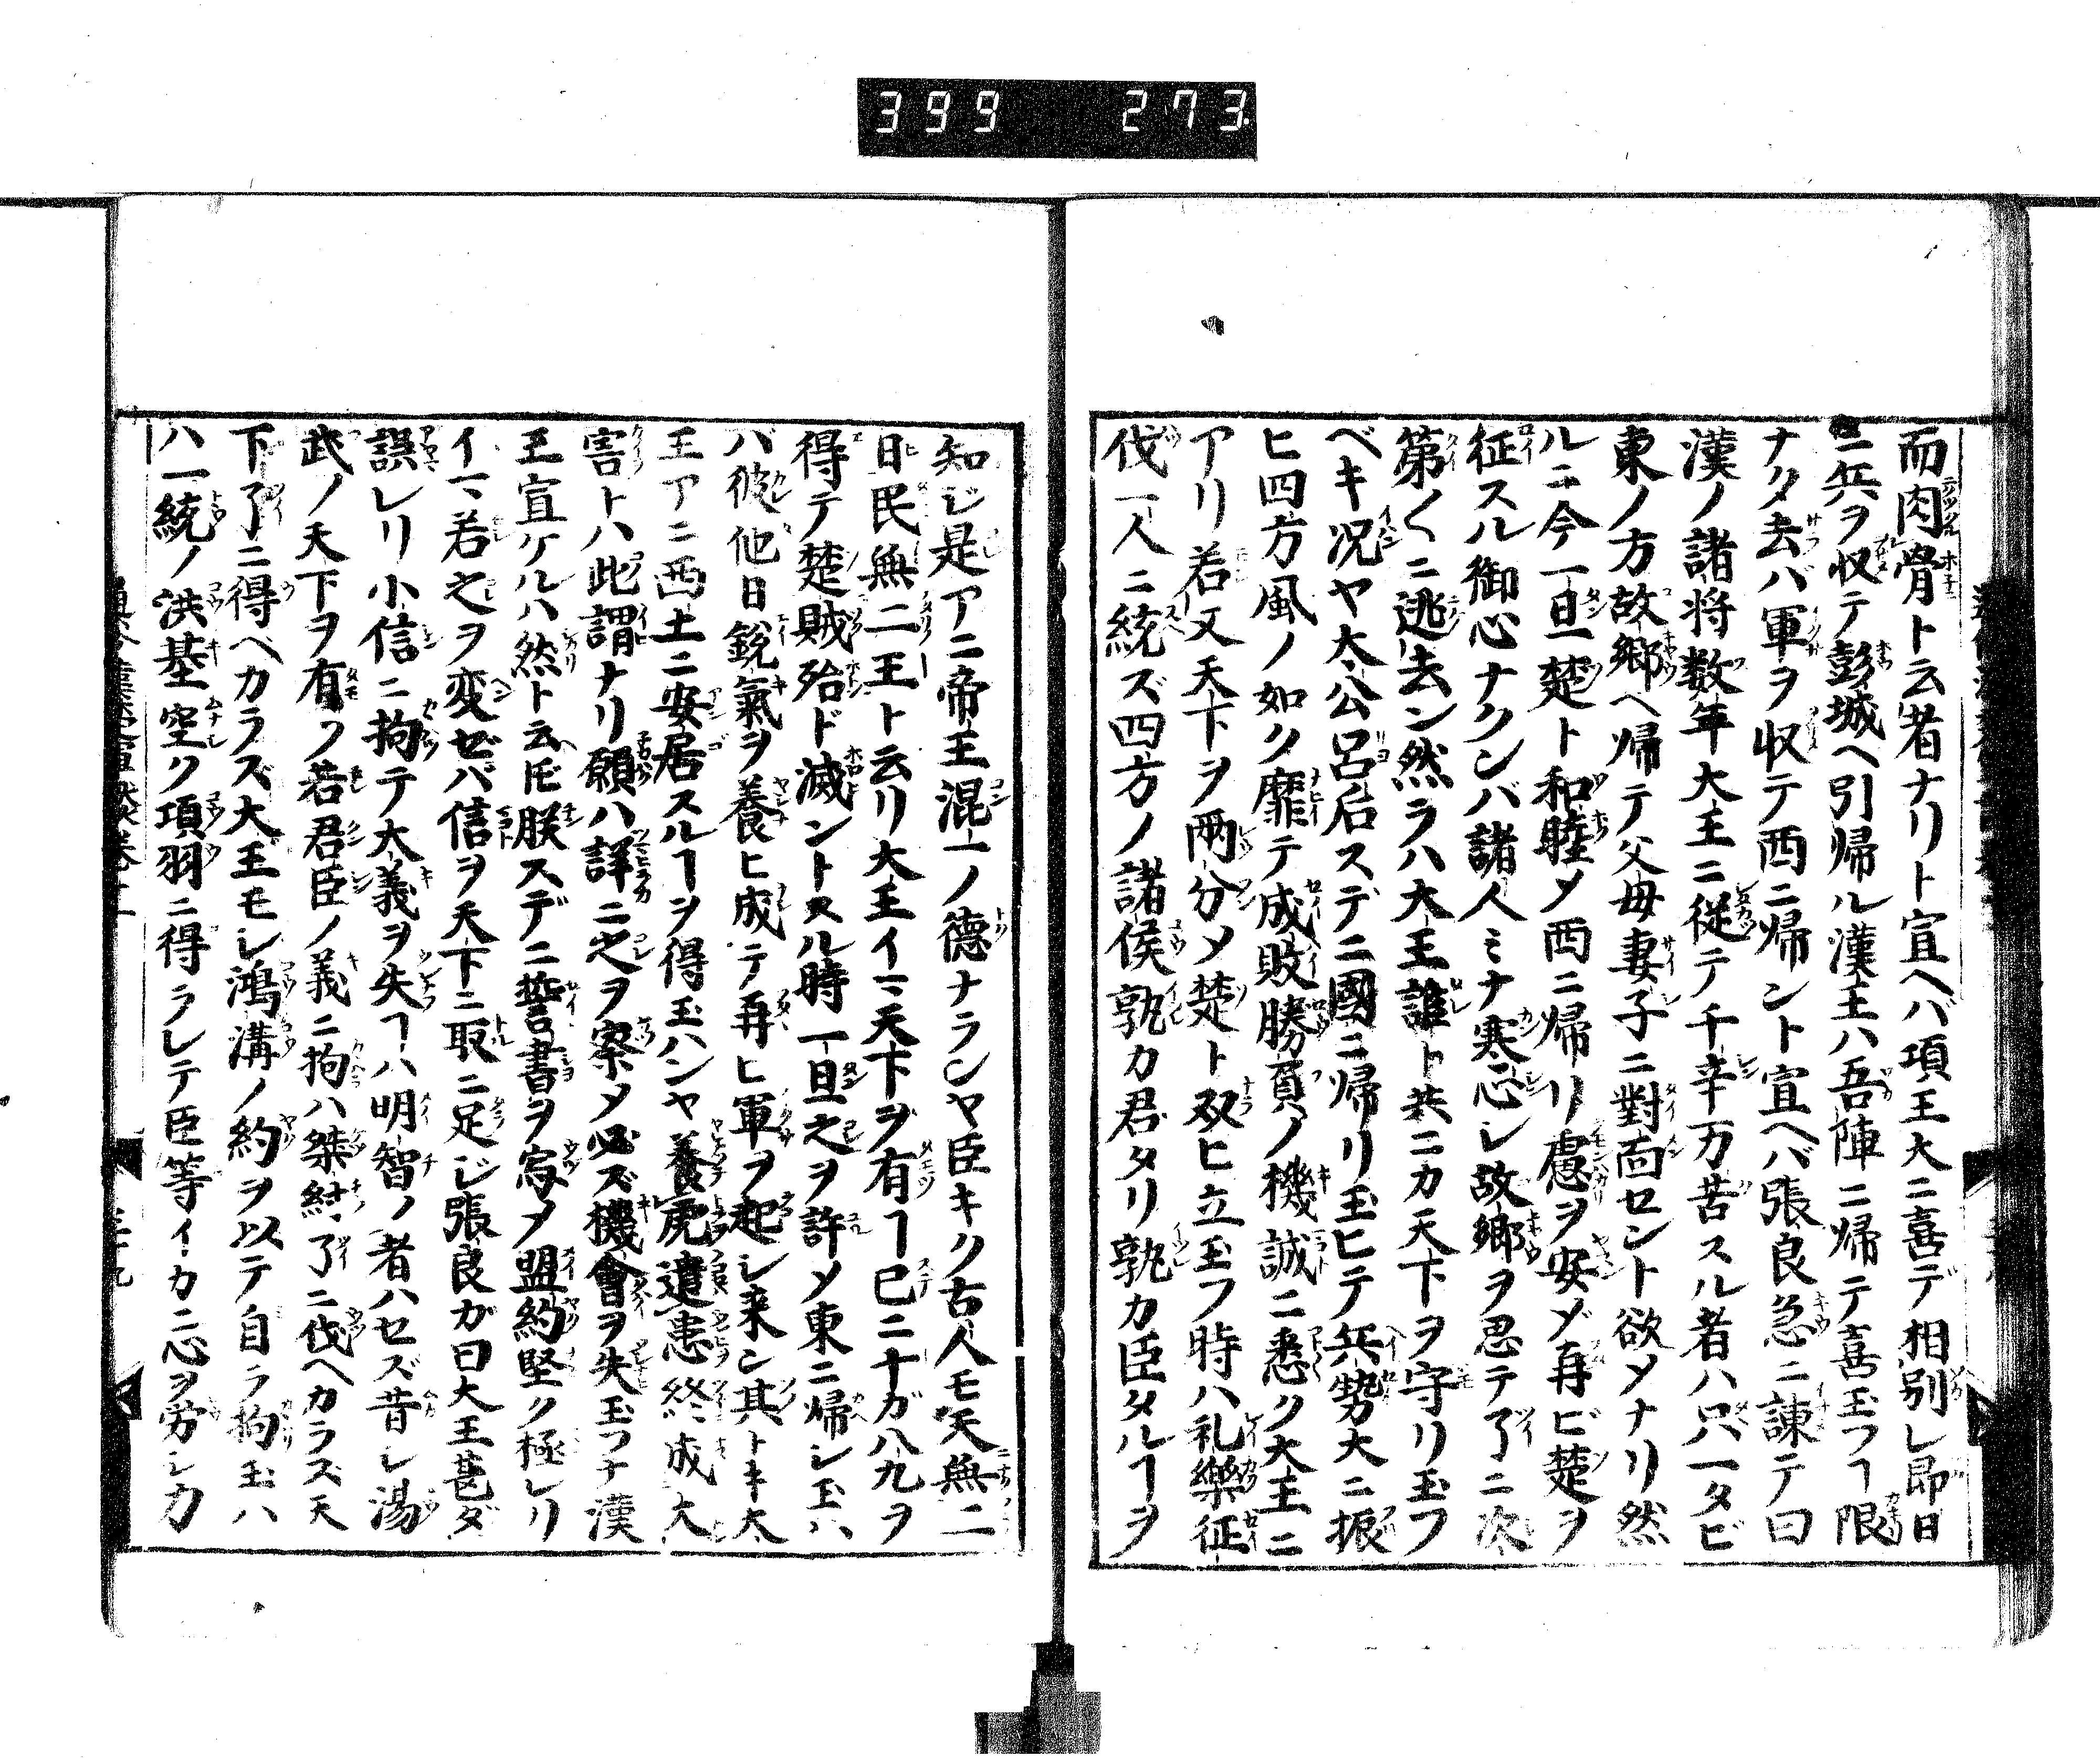 399 273.
而肉骨ト云者ナリト宣ヘバ項王大ニ喜デ相別レ即日
ニ兵ヲ収テ彭城ヘ引帰ル漢王ハ吾陣ニ帰テ喜玉フヿ限
ナク去バ軍ヲ収テ西ニ帰ント宣ヘバ張良急ニ諌テ曰
漢ノ諸将数年大王ニ従テ千辛万苦スル者ハ只一タビ
東ノ方故郷ヘ帰テ父母妻子ニ對面セント欲メナリ然
ルニ今一旦楚ト和睦メ西ニ帰リ慮ヲ安ダ再ビ楚ヲ
征スル御心ナクンバ諸人ミナ寒心シ故郷ヲ忍テ了ニ次
第〱ニ逃去ン然ラハ大王誰ト共ニカ天下ヲ守リ玉フ
ベキ况ヤ太公呂后スデニ國ニ帰リ玉ヒテ兵勢大ニ振
ヒ四方風ノ如ク靡テ成敗勝負ノ機誠ニ悉ク大王ニ
アリ若又天下ヲ両分メ楚ト双ヒ立玉フ時ハ礼樂征
伐一人ニ統ズ四方ノ諸侯孰カ君タリ孰カ臣タルヿヲ
知ジ是アニ帝王混一ノ德ナランヤ臣キク古人モ天無二
日民無二王ト云リ大王イマ天下ヲ有ヿ已ニ十ガ八九ヲ
得テ楚賊殆ド滅ントスル時一旦之ヲ許メ東ニ帰シ玉ハ
バ彼他日鋭氣ヲ養ヒ成テ再ヒ軍ヲ起シ来ン其トキ大
王アニ西土ニ安居スルヿヲ得玉ハンヤ養虎遺患終成大
害トハ此謂ナリ願ハ詳ニ之ヲ察メ必ズ機會ヲ失玉フナ漢
王宣ケルハ然ト云𪜈朕スデニ誓書ヲ寫メ盟約堅ク極レリ
イマ若之ヲ変ゼバ信ヲ天下ニ取ニ足ジ張良ガ曰大王甚ダ
誤レリ小信ニ拘テ大義ヲ失ヿハ明智ノ者ハセズ昔シ湯
武ノ天下ヲ有ツ若君臣ノ義ニ拘ハ桀紂了ニ伐ヘカラズ天
下了ニ得ベカラズ大王モシ鴻溝ノ約ヲ以テ自ラ拘玉ハ
ハ一統ノ洪基空ク項羽ニ得ラレテ臣等イカニ心ヲ労シカ